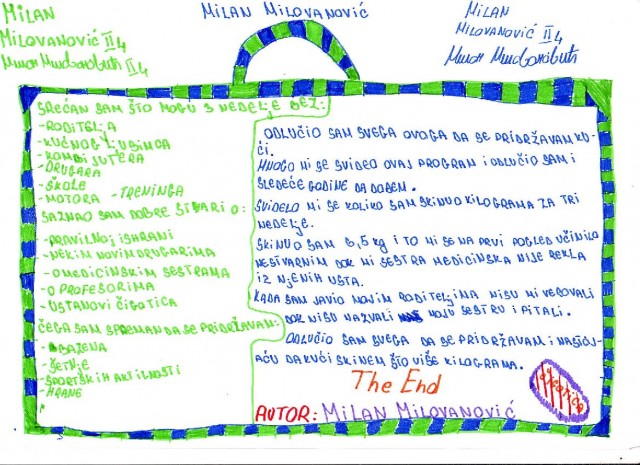 MILAN
MILOVANOVIĆ II4
Милан Миловановић II4
MILAN MILOVANOVIĆ
MILAN
MILOVANOVIĆ II4
Милан Миловановић
SREĆAN SAM ŠTO MOGU 3 NEDELJE BEZ:
-RODITELJA
-KUĆNOG LJUBIMCA
-KOMPJUTERA
-DRUGARA
-ŠKOLE
-MOTORA -TRENINGA
SAZNAO SAM DOBRE STVARI O:
-PRAVILNOJ ISHRANI
-NEKIM NOVIM DRUGARIMA
-O MEDICINSKIM SESTRAMA
-O PROFESORIMA
-USTANOVI ČIGOTICA
ČEGA SAM SPREMAN DA SE PRIDRŽAVAM:
-BAZENA
-ŠETNJE
-SPORTSKIH AKTILNOSTI
-HRANE
ODLUČIO SAM SVEGA OVOGA DA SE PRIDRŽAVAM KU-
ĆI.
MNOGO MI SE SVIDEO OVAJ PROGRAM I ODLUČIO SAM I
SLEDEĆE GODINE DA DOĐEM.
SVIDELO MI SE KOLIKO SAM SKINUO KILOGRAMA ZA TRI
NEDELJE.
SKINUO SAM 6,5 kg I TO MI SE NA PRVI POGLED UČINILO
NESTVARNIM DOK MI SESTRA MEDICINSKA NIJE REKLA
IZ NJENIH USTA.
KADA SAM JAVIO MOJIM RODITELJIMA NISU MI VEROVALI
DOK NISU NAZVALI MOJU SESTRU I PITALI.
ODLUČIO SAM SVEGA DA SE PRIDRŽAVAM I
DA KUĆI SKINEM ŠTO VIŠE KILOGRAMA.
The End
AUTOR: MILAN MILOVANOVIĆ